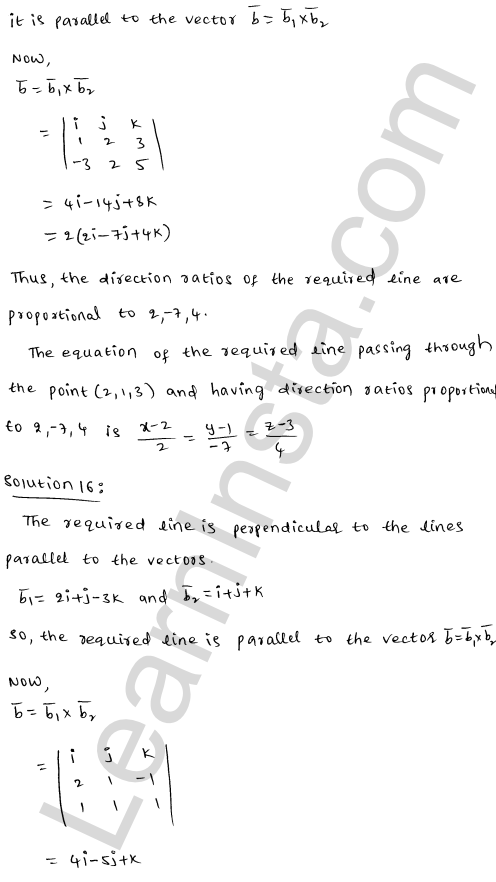 it is parallel to the vector b̄ = b̄₁×b̄₂
Now,
b̄ = b̄₁×b̄₂
= | i j k |
| 1 2 3 |
| -3 2 5 |
= 4i-14j+8k
= 2(2i-7j+4k)
Thus, the direction ratios of the required line are
proportional to 2,-7,4.
The equation of the required line passing through
the point (2,1,3) and having direction ratios proportional
to 2,-7,4 is (x-2)/2 = (y-1)/-7 = (z-3)/4
Solution 16:
The required line is perpendicular to the lines
parallel to the vectors.
b̄₁= 2i+j-3k and b̄₂=i+j+k
So, the required line is parallel to the vector b̄=b̄₁×b̄₂
Now,
b̄ = b̄₁×b̄₂
= | i j k |
| 2 1 -1 |
| 1 1 1 |
= 4i-5j+k
LearnInsta.com